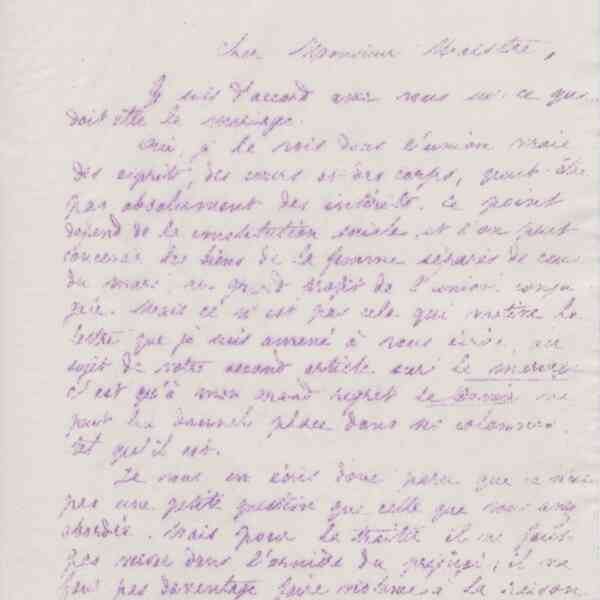 Cher Monsieur Maistre,
Je suis d'accord avec vous sur ce que
doit être le mariage.
Oui, je le vois dans l'union vraie
des esprits, des cœurs et des corps, peut-être
pas absolument des intérêts. Ce point
dépend de la constitution sociale et l'on peut
concevoir les biens de la femme séparés de ceux
du mari, au grand profit de l'union conju
gale. Mais ce n'est pas cela qui motive la
lettre que je suis amené à vous écrire, au
sujet de votre second article sur le mariage
c'est qu'à mon grand regret le Devoir ne
peut lui donner place dans ses colonnes
tel qu'il est.
Je vous en écris donc parce que ce n'est
pas une petite question que celle que vous avez
abordée. Mais pour la traiter il ne faut
pas verser dans l'ornière du préjugé; il ne
faut pas davantage faire violence à la raison